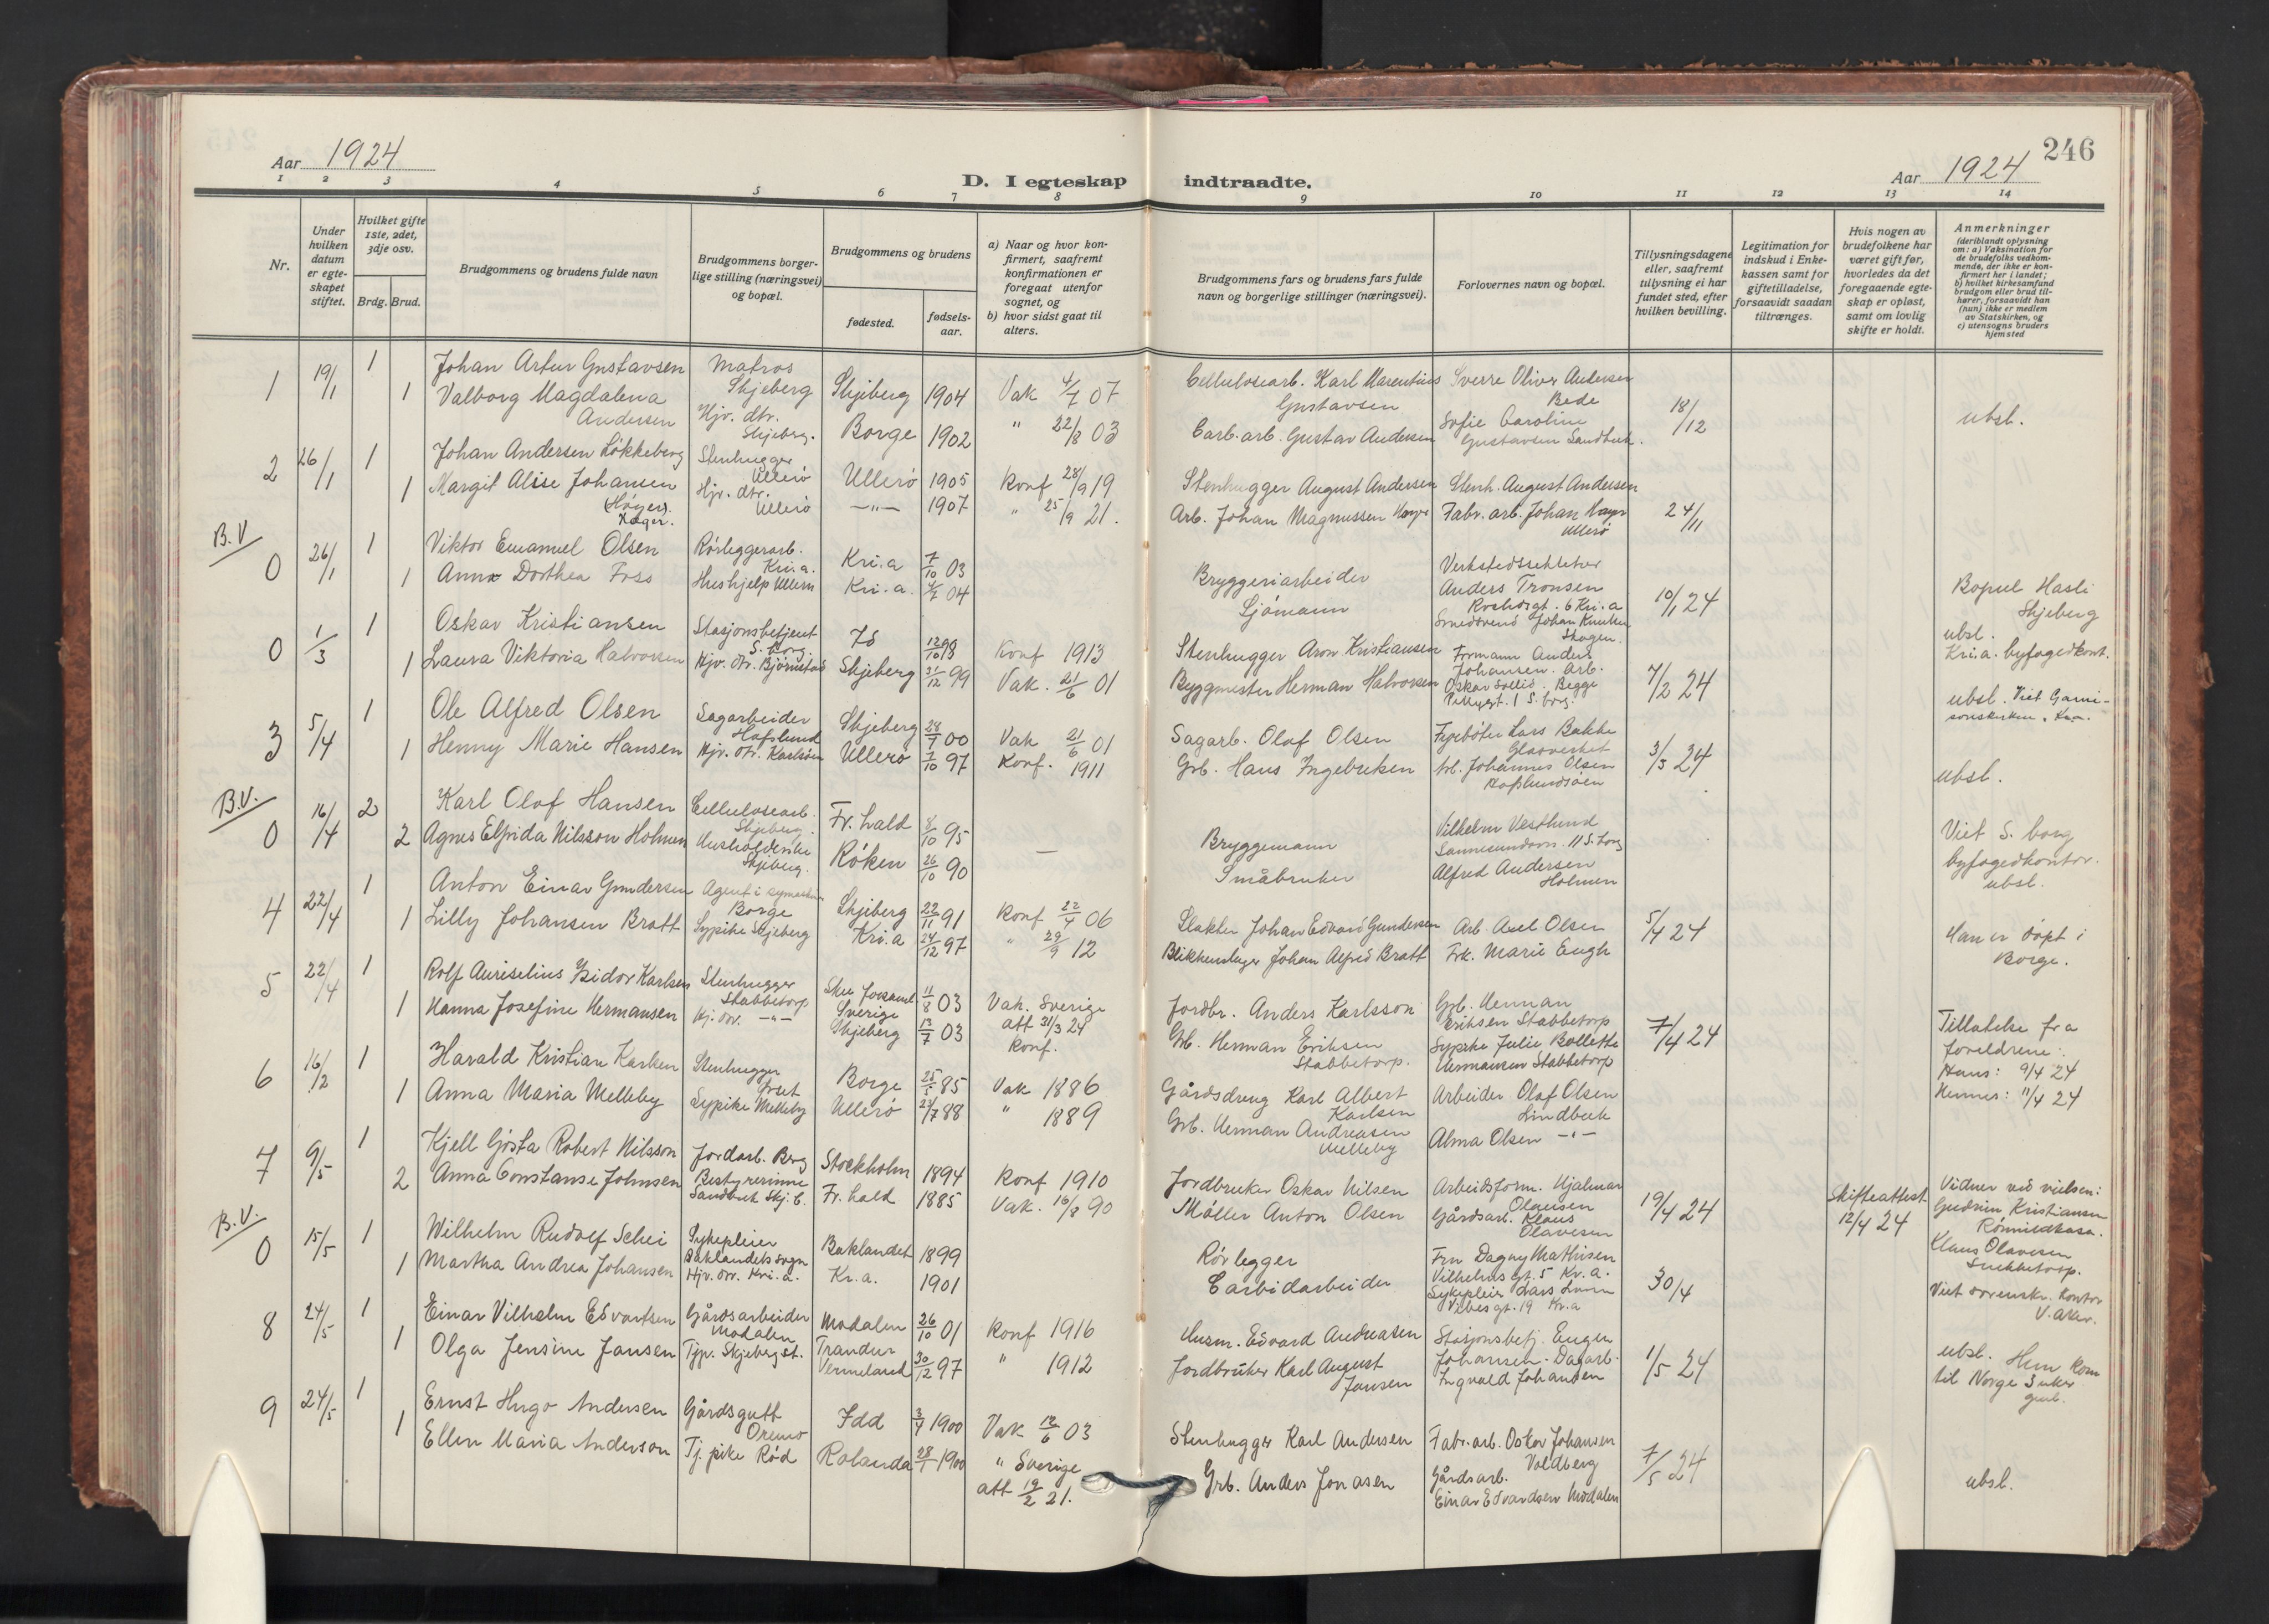 Aar 1924
D. I egteskap indtraadte.
Aar 1924
246
1 2 3 4 5 6 7 8 9 10 11 12 13 14
Nr.
Under hvilken datum er egte-skapet stiftet.
Hvilket gifte 1ste, 2det, 3dje osv.
Brdg. Brud.
Brudgommens og brudens fulde navn
Brudgommens borger-lige stilling (næringsvei) og bopæl.
Brudgommens og brudens
fødested.
fødsels-aar.
a) Naar og hvor kon-firmert, saafremt konfirmationen er foregaat utenfor sognet, og
b) hvor sidst gaat til alters.
Brudgommens fars og brudens fars fulde navn og borgerlige stillinger (næringsvei).
Forlovernes navn og bopæl.
Tillysningsdagene eller, saafremt tillysning ei har fundet sted, efter hvilken bevilling.
Legitimation for indskud i Enke-kassen samt for giftetilladelse, forsaavidt saadan tiltrænges.
Hvis nogen av brudefolkene har været gift før, hvorledes da det foregaaende egte-skap er opløst, samt om lovlig skifte er holdt.
Anmerkninger
(deriblandt oplysning om: a) Vaksination for de brudefolks vedkom-mende, der ikke er kon-firmert her i landet; b) hvilket kirkesamfund brudgom eller brud til-hører, forsaavidt han (hun) ikke er medlem av Statskirken, og c) utensogns bruders hjemsted
1 19/1 1 Johan Artur Gustavsen Matros Skjeberg Skjeberg 1904 Vak 4/7 07 Cellulosearb. Karl Marentius Gustavsen Sverre Oliver Andersen Bede 18/12 ubsl.
1 Valborg Magdalena Andersen Hjv. dtr. Skjeberg. Borge 1902 " 22/8 03 Carb. arb. Gustav Andersen Sofie Caroline Gustavsen Sandbuk.
2 26/1 1 Johan Andersen Løkkeberg Stenhugger Ullerø Ullerø 1905 Konf 28/9 19 Stenhugger August Andersen Stenh. August Andersen 24/11
1 Margit Alise Johansen (Høyer). Høyer. Hjv. dtr. Ullerø —"— 1907 " 25/9 21. Arb. Johan Magnussen Høyer Fabr. arb. Johan Høyer Ullerø
B.V 0 26/1 1 Viktor Emanuel Olsen Rørleggerarb. Kri.a. Kri.a 7/10 03 Bryggeriarbeider Anders Tronsen 6 Kri.a 10/1 24 Bopæl Hasli Skjeberg
1 Anna Dorthea Foss Hushjelp Ullern Kri.a. 4/7 04 Sjømann Johan Knutsen Skogen. ubsl. Kri.a. byfogedkont.
0 1/3 1 Oskar Kristiansen Stasjonsbetjent S. borg. 12/10 98 Konf 1913 Stenhugger Aron Kristiansen Formann Anders Johansen. Arb. 7/2 24 ubsl. Viet Garni-sonskirken, Kr.a.
1 Laura Viktoria Halvorsen Hjv. dtr. Bjørnstad Skjeberg 21/12 99 Vak. 21/6 01 Byggmester Herman Halvorsen Oskar Sollid. Begge 1 S. borg.
3 5/4 1 Ole Alfred Olsen Sagarbeider Hafslund Skjeberg 28/7 00 Vak 21/6 01 Sagarb. Olaf Olsen Lars Bakke Glasverket 3/3 24 ubsl.
1 Henny Marie Hansen Hjv. dtr. Karlsøen Ullerø 7/10 97 Konf. 1911 Grb. Hans Ingebretsen Arb. Johannes Olsen Hafslundsøen
B.V. 0 16/4 2 Karl Olof Hansen Cellulosearb. Skjeberg. Fr. hald 8/10 95 — Bryggemann Vilhelm Vestlund 11 S. borg Viet S. borg byfogedkontor. ubsl.
2 Agnes Elfrida Nilsson Holmen Husholderske Skjeberg. Røken 26/10 90 Småbruker Alfred Andersen Holmen
4 22/4 1 Anton Einar Gundersen Agent i symaskin Borge Skjeberg 22/11 91 Konf 22/4 06 Slakter Johan Edvard Gundersen Arb. Axel Olsen 5/4 24 Han er døpt i Borge.
1 Lilly Johansen Bratt Sypike Skjeberg Kri.a 24/12 97 " 29/9 12 Blikkenslager Johan Alfred Bratt Frk. Marie Eugh
5 22/4 1 Rolf Auriselius Ysidor Karlsen Stenhugger Stabbetorp Skee forsaml. Sverige 11/8 03 Vak. Sverige att 31/3 24 Jordbr. Anders Karlsson Grb. Herman Eriksen Stabbetorp 7/4 24 Tillatelse fra foreldrene: Hans: 9/4 24 Hennes: 11/4 24
1 Hanna Josefine Hermansen Hj. dtr. —"— Skjeberg 13/7 03 Konf. Grb. Herman Eriksen Stabbetorp. Sypike Julie Bollette Hermansen Stabbetorp
6 16/2 1 Harald Kristian Karlsen Stenhugger Borge 25/5 85 Vak 1886 Gårdsdreng Karl Albert Karlsen Arbeider Olaf Olsen Lindbæk
1 Anna Maria Melleby Sypike Melleby Ullerø 23/7 88 " 1889 Grb. Herman Andreasen Melleby Alma Olsen —"—
7 9/5 1 Kjell Gösta Robert Nilsson Jordarb. Berg Stockholm 1894 Konf 1910 Jordbruker Oskar Nilsen Arbeidsform. Hjalmar Olausen 19/4 24 Skifteattest 12/4 24 Vidner ved vielsen: Gudrun Kristiansen
2 Anna Constanse Johnsen Bestyrerinne Sandbuk Skj.b. Fr. hald 1885 Vak. 16/8 90 Møller Anton Olsen Gårdsarb. Klaus Olavesen Klaus Olavesen
B.V. 0 15/5 1 Wilhelm Rudolf Schei Sykepleier Baklandets sogn Baklandet 1899 Rørlegger Fru Dagny Mathisen Vilhelms gt. 5 Kr.a. 30/4 Viet sorenskr. kontor V. Aker.
1 Martha Andrea Johansen Hjv. dtr. Kri.a. Kr.a. 1901 Carbidarbeider Sykepleier Lars 19 Kr.a
8 24/5 1 Einar Vilhelm Edvartsen Gårdsarbeider Modalen Modalen 26/10 01 Konf 1916 Husm. Edvard Andreasen Stasjonsbetj. Eugen Johansen. 1/5 24 ubsl. Hun kom til Norge 3 uker gml.
1 Olga Jensine Jansen Tjp. Skjeberg st. Trandur Vermeland 30/12 97 " 1912 Jordbruker Karl August Jansen Dagarb. Ingvald Johansen
9 24/5 1 Ernst Hugo Andersen Gårdsgutt Oremo Idd 3/4 1900 Vak 13/6 03 Stenhugger Karl Andersen Fabr. arb. Oskar Johansen Voldberg 7/5 24 ubsl.
1 Ellen Maria Anderson Tj. pike Rød Rolanda 28/1 1900 " Sverige att 19/2 21. Grb. Anders Jonasen Gårdsarb. Einar Edvardsen Modalen